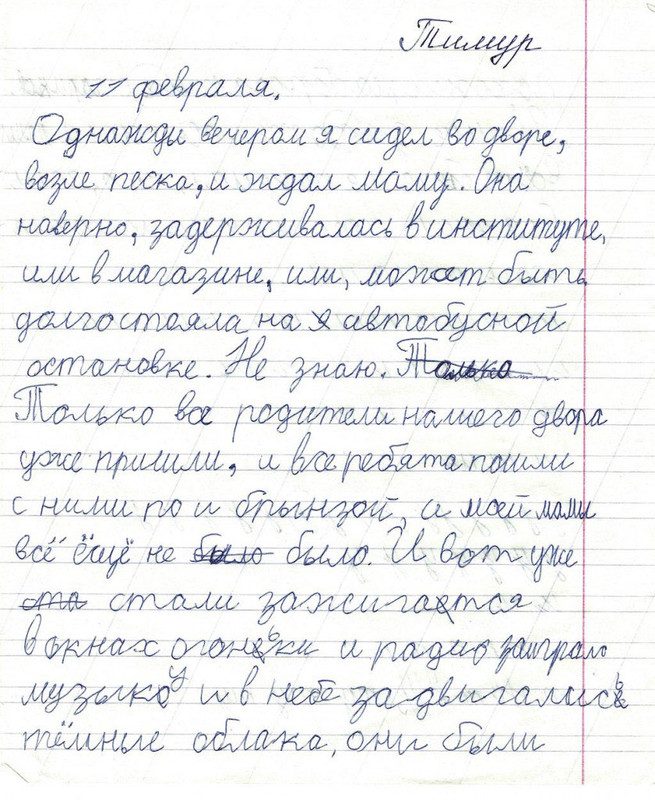 Тимур
11 февраля.
Однажды вечером я сидел во дворе,
возле песка, и ждал маму. Она
наверно, задерживалась в институте,
или в магазине, или, может быть
долго стояла на автобусной
остановке. Не знаю. Только
Только все родители нашего двора
уже пришли, и все ребята пошли
с ними по и брынзой, а моей мамы
всё ёщё не было было. И вот уже
ста стали зажигатся
в окнах огоньки и радио заиграло
музыку и в небе задвигались
тёмные облака, они были